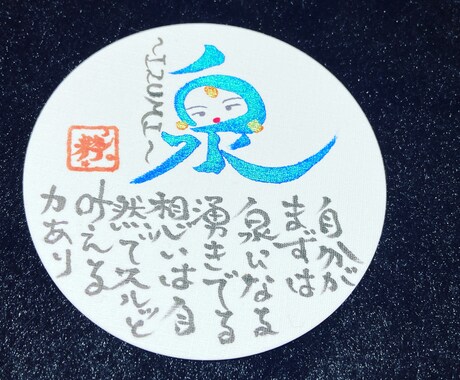 泉
~IZUMI~
自分が
まずは
泉になる
湧きでる
想いは自
然てスルッと
叶える
力あり